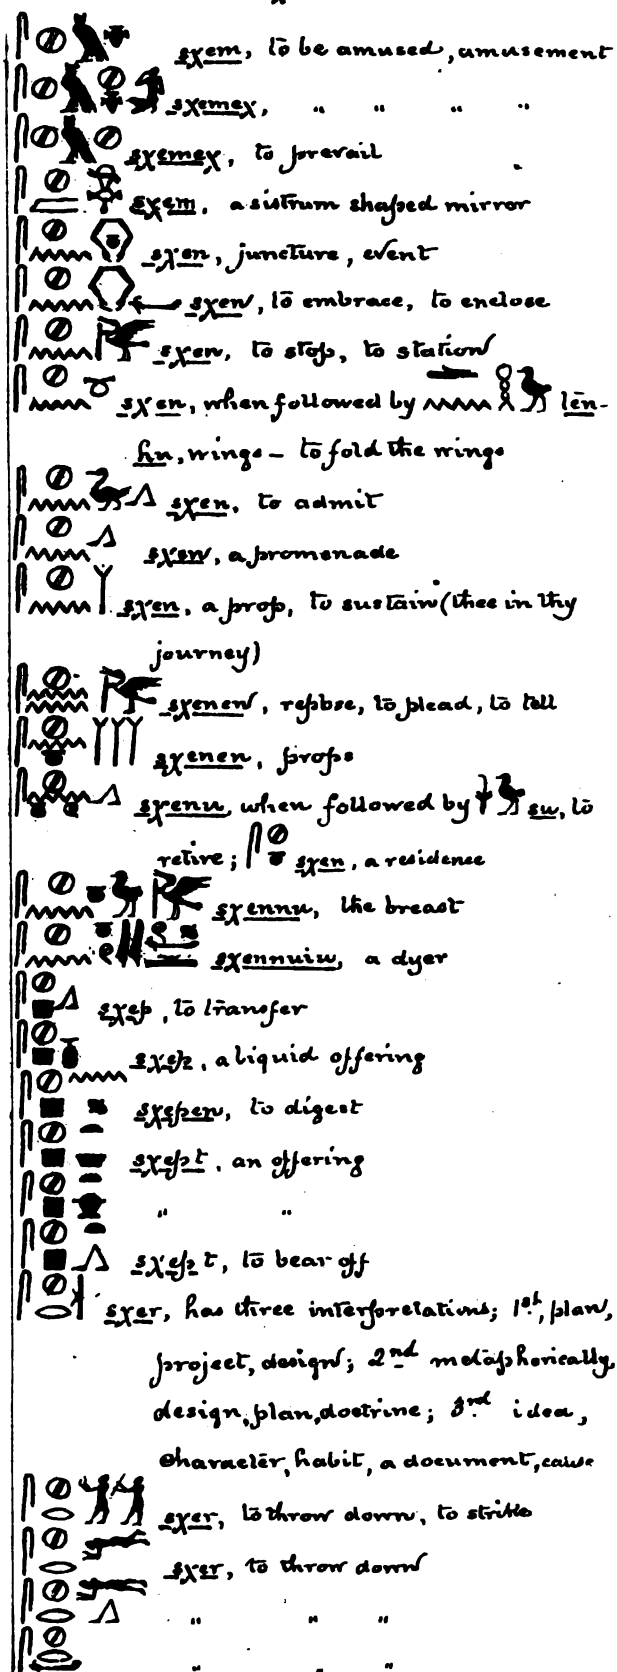 sχem, to be amused, amusement
sχemeχ, " " " "
sχemeχ, to prevail
sχem, a sistrum shaped mirror
sχen, juncture, event
sχen, to embrace, to enclose
sχen, to stop, to station
sχen, when followed by ten-
hn, wings – to fold the wings
sχen, to admit
sχen, a promenade
sχen, a prop, to sustain (thee in thy
journey)
sχenen, repose, to plead, to tell
sχenen, props
sχenu, when followed by su, to
retire; sχen, a residence
sχennu, the breast
sχennuiu, a dyer
sχep, to transfer
sχep, a liquid offering
sχepen, to digest
sχept, an offering
" "
sχept, to bear off
sχer, has three interpretations; 1st, plan,
project, design; 2nd metaphorically,
design, plan, doctrine; 3rd idea,
character, habit, a document, cause
sχer, to throw down, to strike
sχer, to throw down
" " "
" " "